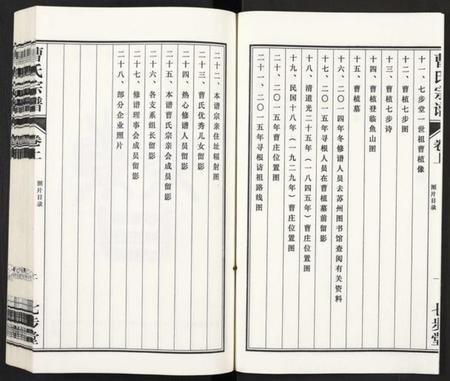 曹氏宗谱
卷上
图片目录
一
七步堂
十一、七步堂一世祖曹植像
十二、曹植七步图
十三、曹植七步诗
十四、曹植登临鱼山图
十五、曹植墓
十六、二〇一四年冬修谱人员去苏州图书馆查阅有关资料
十七、二〇一五年寻根人员在曹植墓前留影
十八、清道光二十五年（一八四五年）曹庄位置图
十九、民国十八年（一九二九年）曹庄位置图
二十、二〇一五年曹庄位置图
二十一、二〇一五年寻根访祖路线图
二十二、本谱宗亲住址辐射图
二十三、曹氏优秀儿女留影
二十四、热心修谱人员留影
二十五、本谱曹氏宗亲会成员留影
二十六、各支系组长留影
二十七、修谱理事会成员留影
二十八、部分企业照片
曹氏宗谱
卷上
图片目录
七步堂